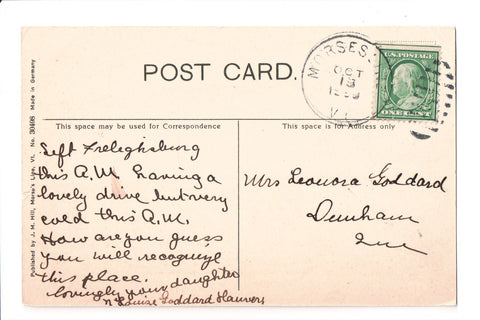 POST CARD.
MORSES
OCT
13
VT.
U.S. POSTAGE
ONE CENT
This space may be used for Correspondence
This space is for Address only
Published by J. M. Hill, Morse's Line, Vt. No. 30498 Made in Germany
Left Frelighsburg
this A.M. having a
lovely drive but very
cold this A.M.
How are you guess
you will recognize
this place.
lovingly your daughter
Louise Goddard
Mrs Leonora Goddard
Dunham
Que